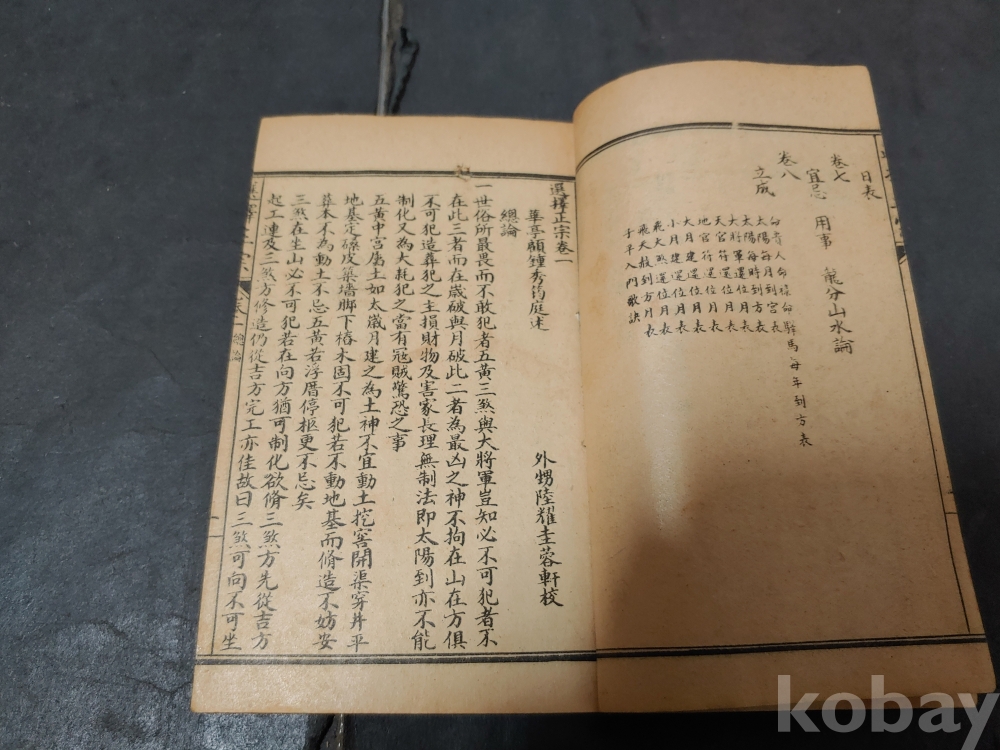 日表
卷七
宜忌　用事　龍分山水論
卷八
立成
太陽每月到宮表
太陽每時到方表
大將軍還位月表
天官符還位月表
地官符還位月表
大月建還位月表
小月建還位月表
飛大煞還位月表
飛天赦到方月表
子平入門歌訣
選擇正宗卷一
華亭顧鍾秀筠庭述　外甥陸耀圭蓉軒校
總論
一世俗所最畏而不敢犯者五黃三煞與大將軍豈知必不可犯者不
在此三者而在歲破與月破此二者為最凶之神不拘在山在方俱
不可犯造葬犯之主損財物及害家長理無制法即太陽到亦不能
制化又為大耗犯之當有冦賊驚恐之事
五黃中宮屬土如太歲月建之為土神不宜動土挖窖開渠穿井平
地基定磉皮築墻脚下樁木固不可犯若不動地基而脩造不妨安
葬本不為動土不忌五黃若浮厝停柩更不忌矣
三煞在坐山必不可犯若在向方猶可制化欲脩三煞方先從吉方
起工連及三煞方修造仍從吉方完工亦佳故曰三煞可向不可坐
卷一　總論
一
kobay